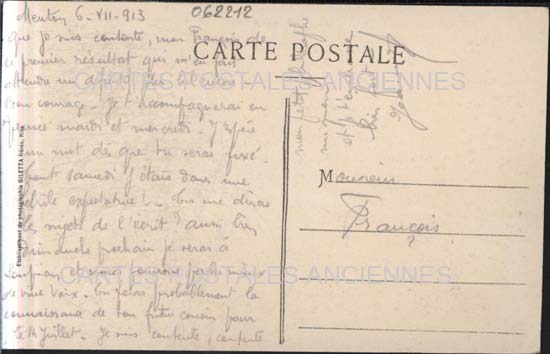 Menton, 6-VII-913
062212
que je suis contente, mon François de
ce premier résultat qui m'a fait
attendre un
Bon courage. Je t'accompagnerai en
pensée mardi et mercredi. J'espère
un mot dès que tu seras fixé.
tout samedi j'étais dans une
expectative! Tu me diras
les sujets de l'écrit? aussi bien
dimanche prochain je serai à
et nous pourrons parler
de vive voix. Tu feras probablement la
connaissance de ton futur cousin pour
le 14 Juillet. Je suis contente, contente
mon petit
et je t'embrasse
bien fort
CARTE POSTALE
Monsieur
François
?
Etablissement de photographie GILETTA Frères, Nice
CARTES POSTALES ANCIENNES
CARTES POSTALES ANCIENNES